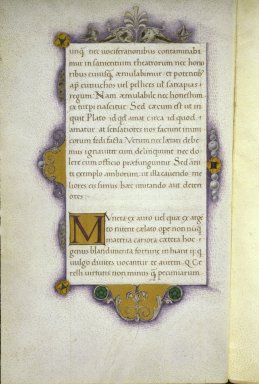 unq; nec uociferationibus contaminabi
mur insanientium theatrorum nec hono
ribus cuiusq; aemulabimur et potentib;
ap eunuchos uel pellices ut satrapias
regum. Nam aemulabile nec honestum
ex turpi nascitur. Sed caecum est ut in
quit Plato id qd amat circa id quod
amatur at sensatiores nos faciunt inimi
corum foeda facta. Verum nec laetari debe
mus ignauiter cum delinquunt nec do
lere cum officio praefunguntur. Sed
exemplo amborum ut illa cauendo me
liores eis simus haec imitando aut deteri
ores
MVnera ex auro uel quae ex arge
to nitent caelato ope non
materia cariora caetera hoc
genus blandimenta fortunae
uulgo diuites uocantur
virtutis non minus q; pecuniarum